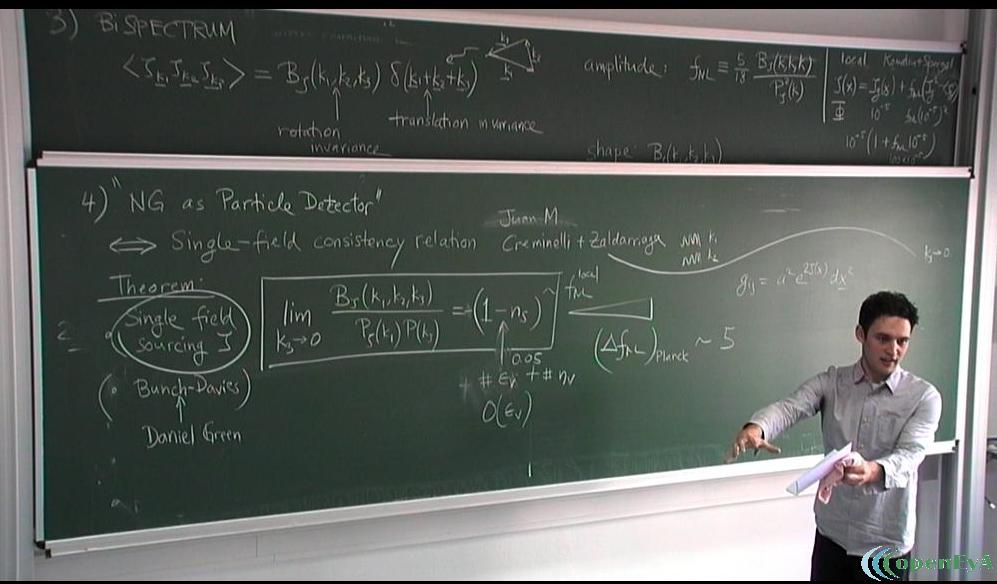 3) BiSPECTRUM
<ζk1 ζk2 ζk3> = Bζ(k1,k2,k3) δ(k1+k2+k3)
rotation invariance
translation invariance
amplitude: fNL ≡ 5/18 Bζ(k,k,k)/Pζ²(k)
shape: Bζ(k1,k2,k3)
local Komatsu+Spergel
ζ(x) = ζg(x) + fNL
Φ 10⁻⁵ fNL(10⁻⁵)²
10⁻⁵(1 + fNL 10⁻⁵)
4) "NG as Particle Detector"
⟺ Single-field consistency relation
Juan M
Creminelli + Zaldarriaga
k1
k2
k3→0
gij = a² e^2ζ(x) dx²
Theorem:
2
• Single field
sourcing ζ
(• Bunch-Davies)
↑
Daniel Green
lim k3→0 Bζ(k1,k2,k3)/Pζ(k1)P(k3) = (1-ns) ~ fNL^local
0.05
# εv + # ηv
O(εv)
(ΔfNL)Planck ~ 5
openEyA